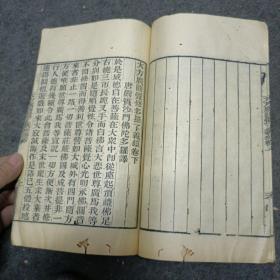 大方廣圓覺修多羅了義經卷下
唐罽賓沙門佛陀多羅譯
於是威德自在菩薩在大眾中即從座起頂禮佛足
右繞三帀長跪叉手而白佛言大悲世尊廣為我等
分別如是隨順覺性令諸菩薩覺心光明承佛圓音
不因修習而得善利世尊譬如大城外有四門隨方
來者非止一路一切菩薩莊嚴佛國及成菩提非一
方便唯願世尊廣為我等宣說一切方便漸次并修
行人總有幾種令此會菩薩及末世眾生求大乘者
速得開悟遊戲如來大寂滅海作是語已五體投地